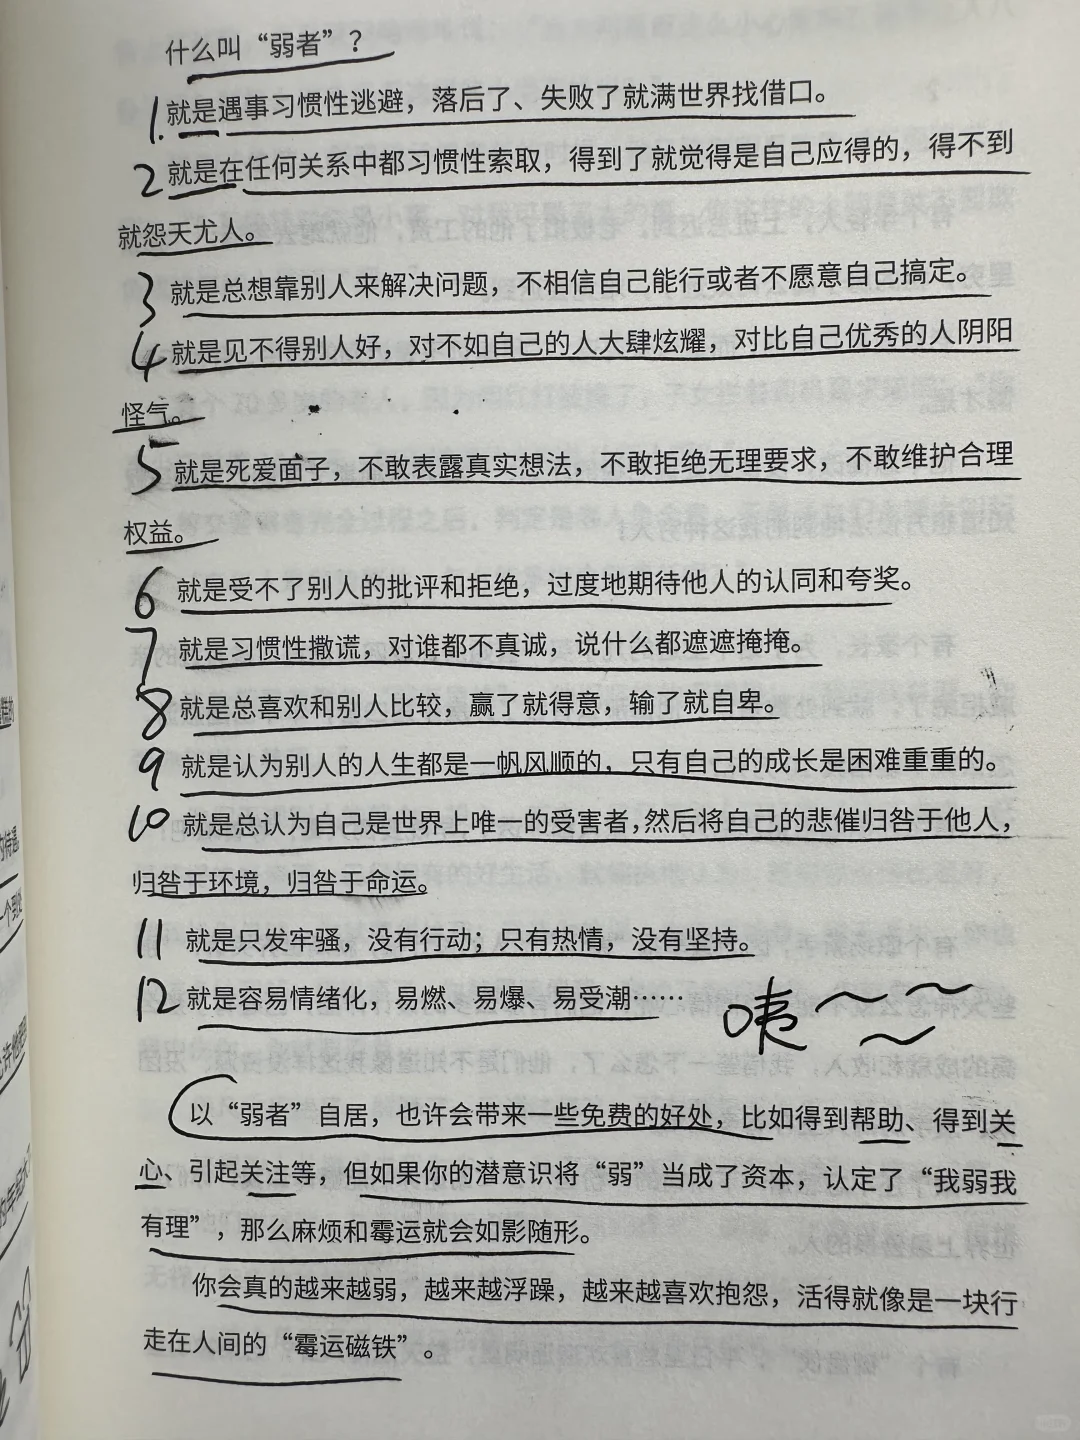 什么叫“弱者”？
1.就是遇事习惯性逃避，落后了、失败了就满世界找借口。
2 就是在任何关系中都习惯性索取，得到了就觉得是自己应得的，得不到
就怨天尤人。
3 就是总想靠别人来解决问题，不相信自己能行或者不愿意自己搞定。
4 就是见不得别人好，对不如自己的人大肆炫耀，对比自己优秀的人阴阳
怪气。
5 就是死爱面子，不敢表露真实想法，不敢拒绝无理要求，不敢维护合理
权益。
6 就是受不了别人的批评和拒绝，过度地期待他人的认同和夸奖。
7 就是习惯性撒谎，对谁都不真诚，说什么都遮遮掩掩。
8 就是总喜欢和别人比较，赢了就得意，输了就自卑。
9 就是认为别人的人生都是一帆风顺的，只有自己的成长是困难重重的。
10 就是总认为自己是世界上唯一的受害者，然后将自己的悲催归咎于他人，
归咎于环境，归咎于命运。
11 就是只发牢骚，没有行动；只有热情，没有坚持。
12 就是容易情绪化，易燃、易爆、易受潮……
咦～～～
以“弱者”自居，也许会带来一些免费的好处，比如得到帮助、得到关
心、引起关注等，但如果你的潜意识将“弱”当成了资本，认定了“我弱我
有理”，那么麻烦和霉运就会如影随形。
你会真的越来越弱，越来越浮躁，越来越喜欢抱怨，活得就像是一块行
走在人间的“霉运磁铁”。